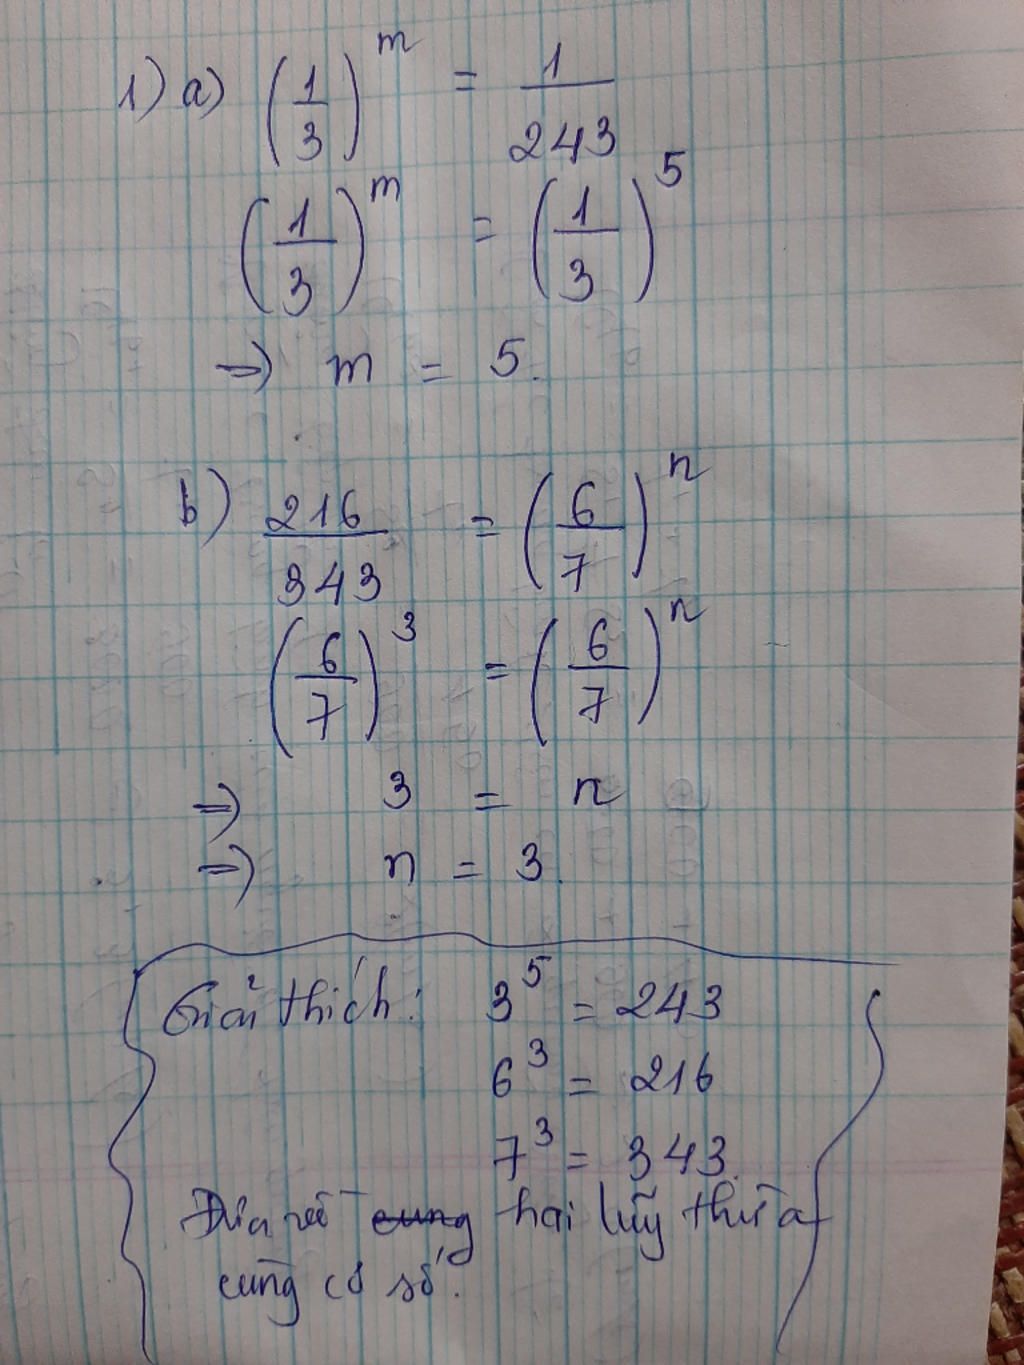 1) a) (1/3)^m = 1/243
(1/3)^m = (1/3)^5
=> m = 5.
b) 216/343 = (6/7)^n
(6/7)^3 = (6/7)^n
=> 3 = n
=> n = 3.
Giải thích: 3^5 = 243
6^3 = 216
7^3 = 343.
Đưa về cung hai lũy thừa
cùng cơ số.